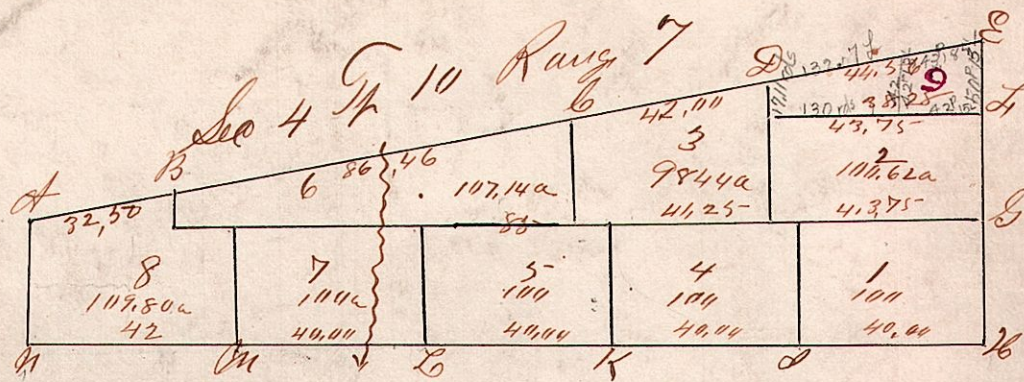 Sec 4 Tp 10 Rang 7
A
B
C
D
E
F
G
H
I
K
L
M
N
32,50
6
86,46
107,14a
85
42,00
3
98 44a
41,25
132
44,5
9
130 rds
43,75
2
100,62a
43,75
8
109.80a
42
7
100a
40,00
5
100
40,00
4
100
40,00
1
100
40,00